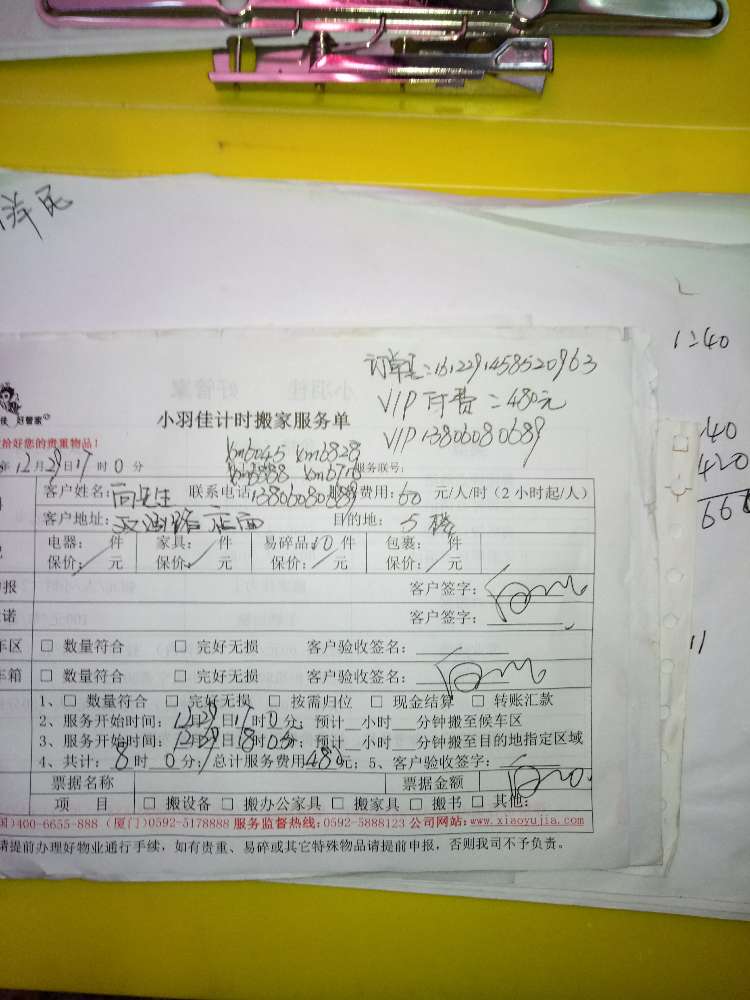 订单号:1612291458520963
VIP 付费 = 480元
VIP 13806080689
1=40
40
420
好管家
小羽佳计时搬家服务单
恰好您的贵重物品!
km6045 km6828
服务联号:
年12月29日17时0分
客户姓名: 先生 联系电话13806080689 费用: 60 元/人/时(2小时起/人)
客户地址: 店面 目的地: 5楼
电器: 件 家具: 件 易碎品10件 包裹: 件
保价: 元 保价: 元 保价: 元 保价: 元
报 客户签字:
诺 客户签字:
车区 □ 数量符合 □ 完好无损 客户验收签名:
车箱 □ 数量符合 □ 完好无损 客户验收签名:
1、□ 数量符合 □ 完好无损 □ 按需归位 □ 现金结算 □ 转账汇款
2、服务开始时间: 12月29日17时0分; 预计__小时__分钟搬至候车区
3、服务开始时间: 12月29日18时0分; 预计__小时__分钟搬至目的地指定区域
4、共计: 8时 0分; 总计服务费用480元; 5、客户验收签字:
票据名称 票据金额
项 目 □ 搬设备 □ 搬办公家具 □ 搬家具 □ 搬书 □ 其他:
国)400-6655-888 (厦门)0592-5178888 服务监督热线:0592-5888123 公司网站:www.xiaoyujia.com
请提前办理好物业通行手续,如有贵重、易碎或其它特殊物品请提前申报,否则我司不予负责。